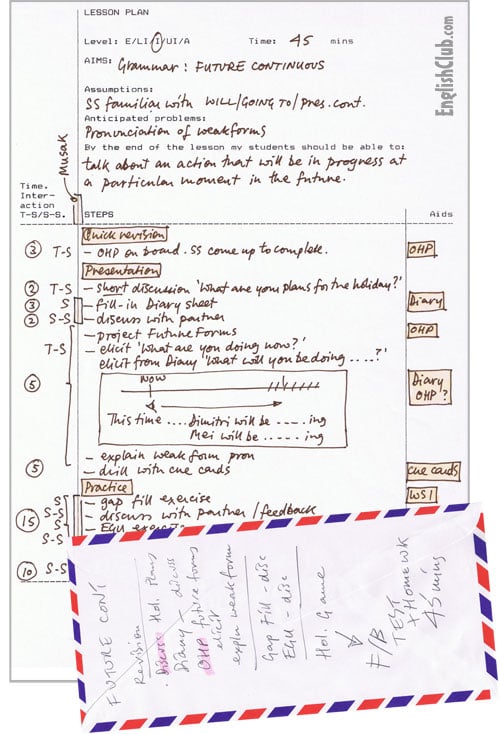 LESSON PLAN
EnglishClub.com
Level: E/LI/I/UI/A Time: 45 mins
AIMS: Grammar: FUTURE CONTINUOUS
Assumptions:
SS familiar with WILL/GOING TO/pres.cont.
Anticipated problems:
Pronunciation of weakforms
By the end of the lesson my students should be able to:
talk about an action that will be in progress at
a particular moment in the future.
Musak
Time.
Inter-
action
T-S/S-S. STEPS Aids
Quick revision
3 T-S - OHP on board. SS come up to complete. OHP
Presentation
2 T-S - short discussion 'What are your plans for the holiday?'
3 S - fill-in Diary sheet Diary
2 S-S - discuss with partner
- project Future Forms OHP
T-S - elicit 'What are you doing now?'
elicit from Diary 'What will you be doing ....?'
5 Diary
OHP?
now
This time .... Dimitri will be ----- ing
Mei will be ----- ing
- explain weak form pron
5 - drill with cue cards cue cards
Practice
S - gap fill exercise WS1
15 S-S - discuss with partner/feedback
S - EGU exercise
S-S
10 S-S
FUTURE CONT
Revision
Discuss Hol. Plans
Diary - discuss
OHP future forms
elicit
explain weak form
Gap Fill - disc
EGU - disc
Hol. Game
F/B
TEST
+ Homewk
45 mins